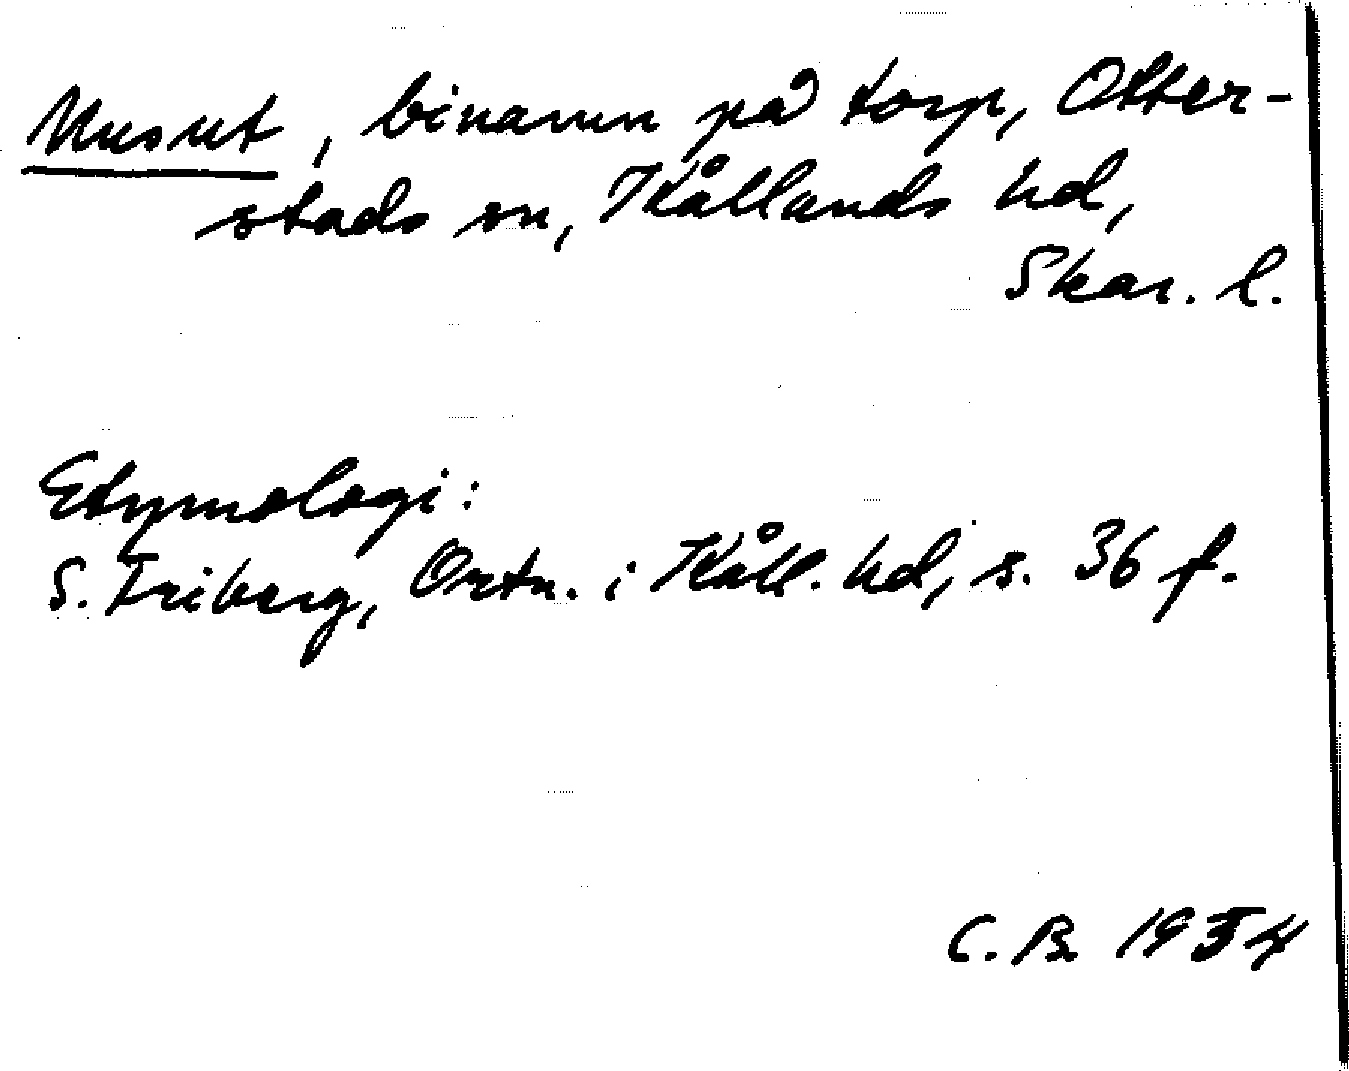 Musut, binamn på torp, Otter-
stads sn, Kållands hd,
Skar. l.
Etymologi:
S. Friberg, Ortn. i Kåll. hd, s. 36 f.
C. B. 1954